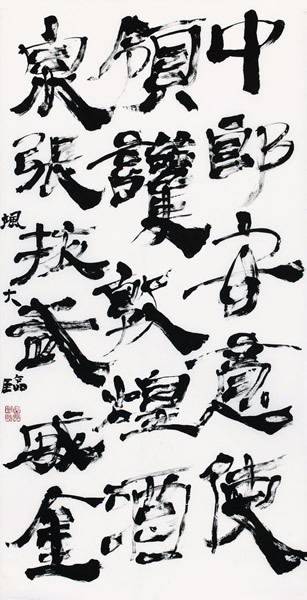 中郎安意使
領護敦煌酒
泉張掖武威金
大臨